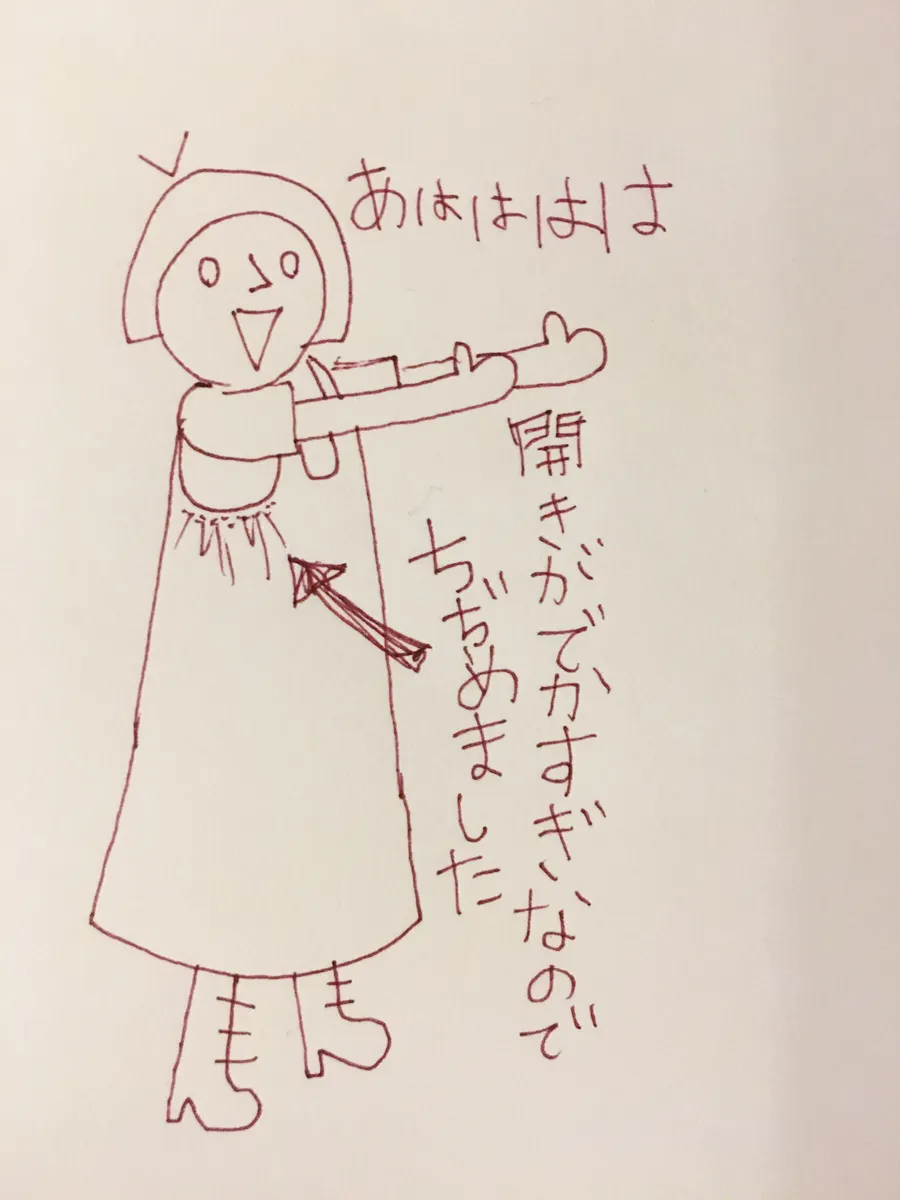 あはははは
開きがでかすぎなので
ぢぢめました